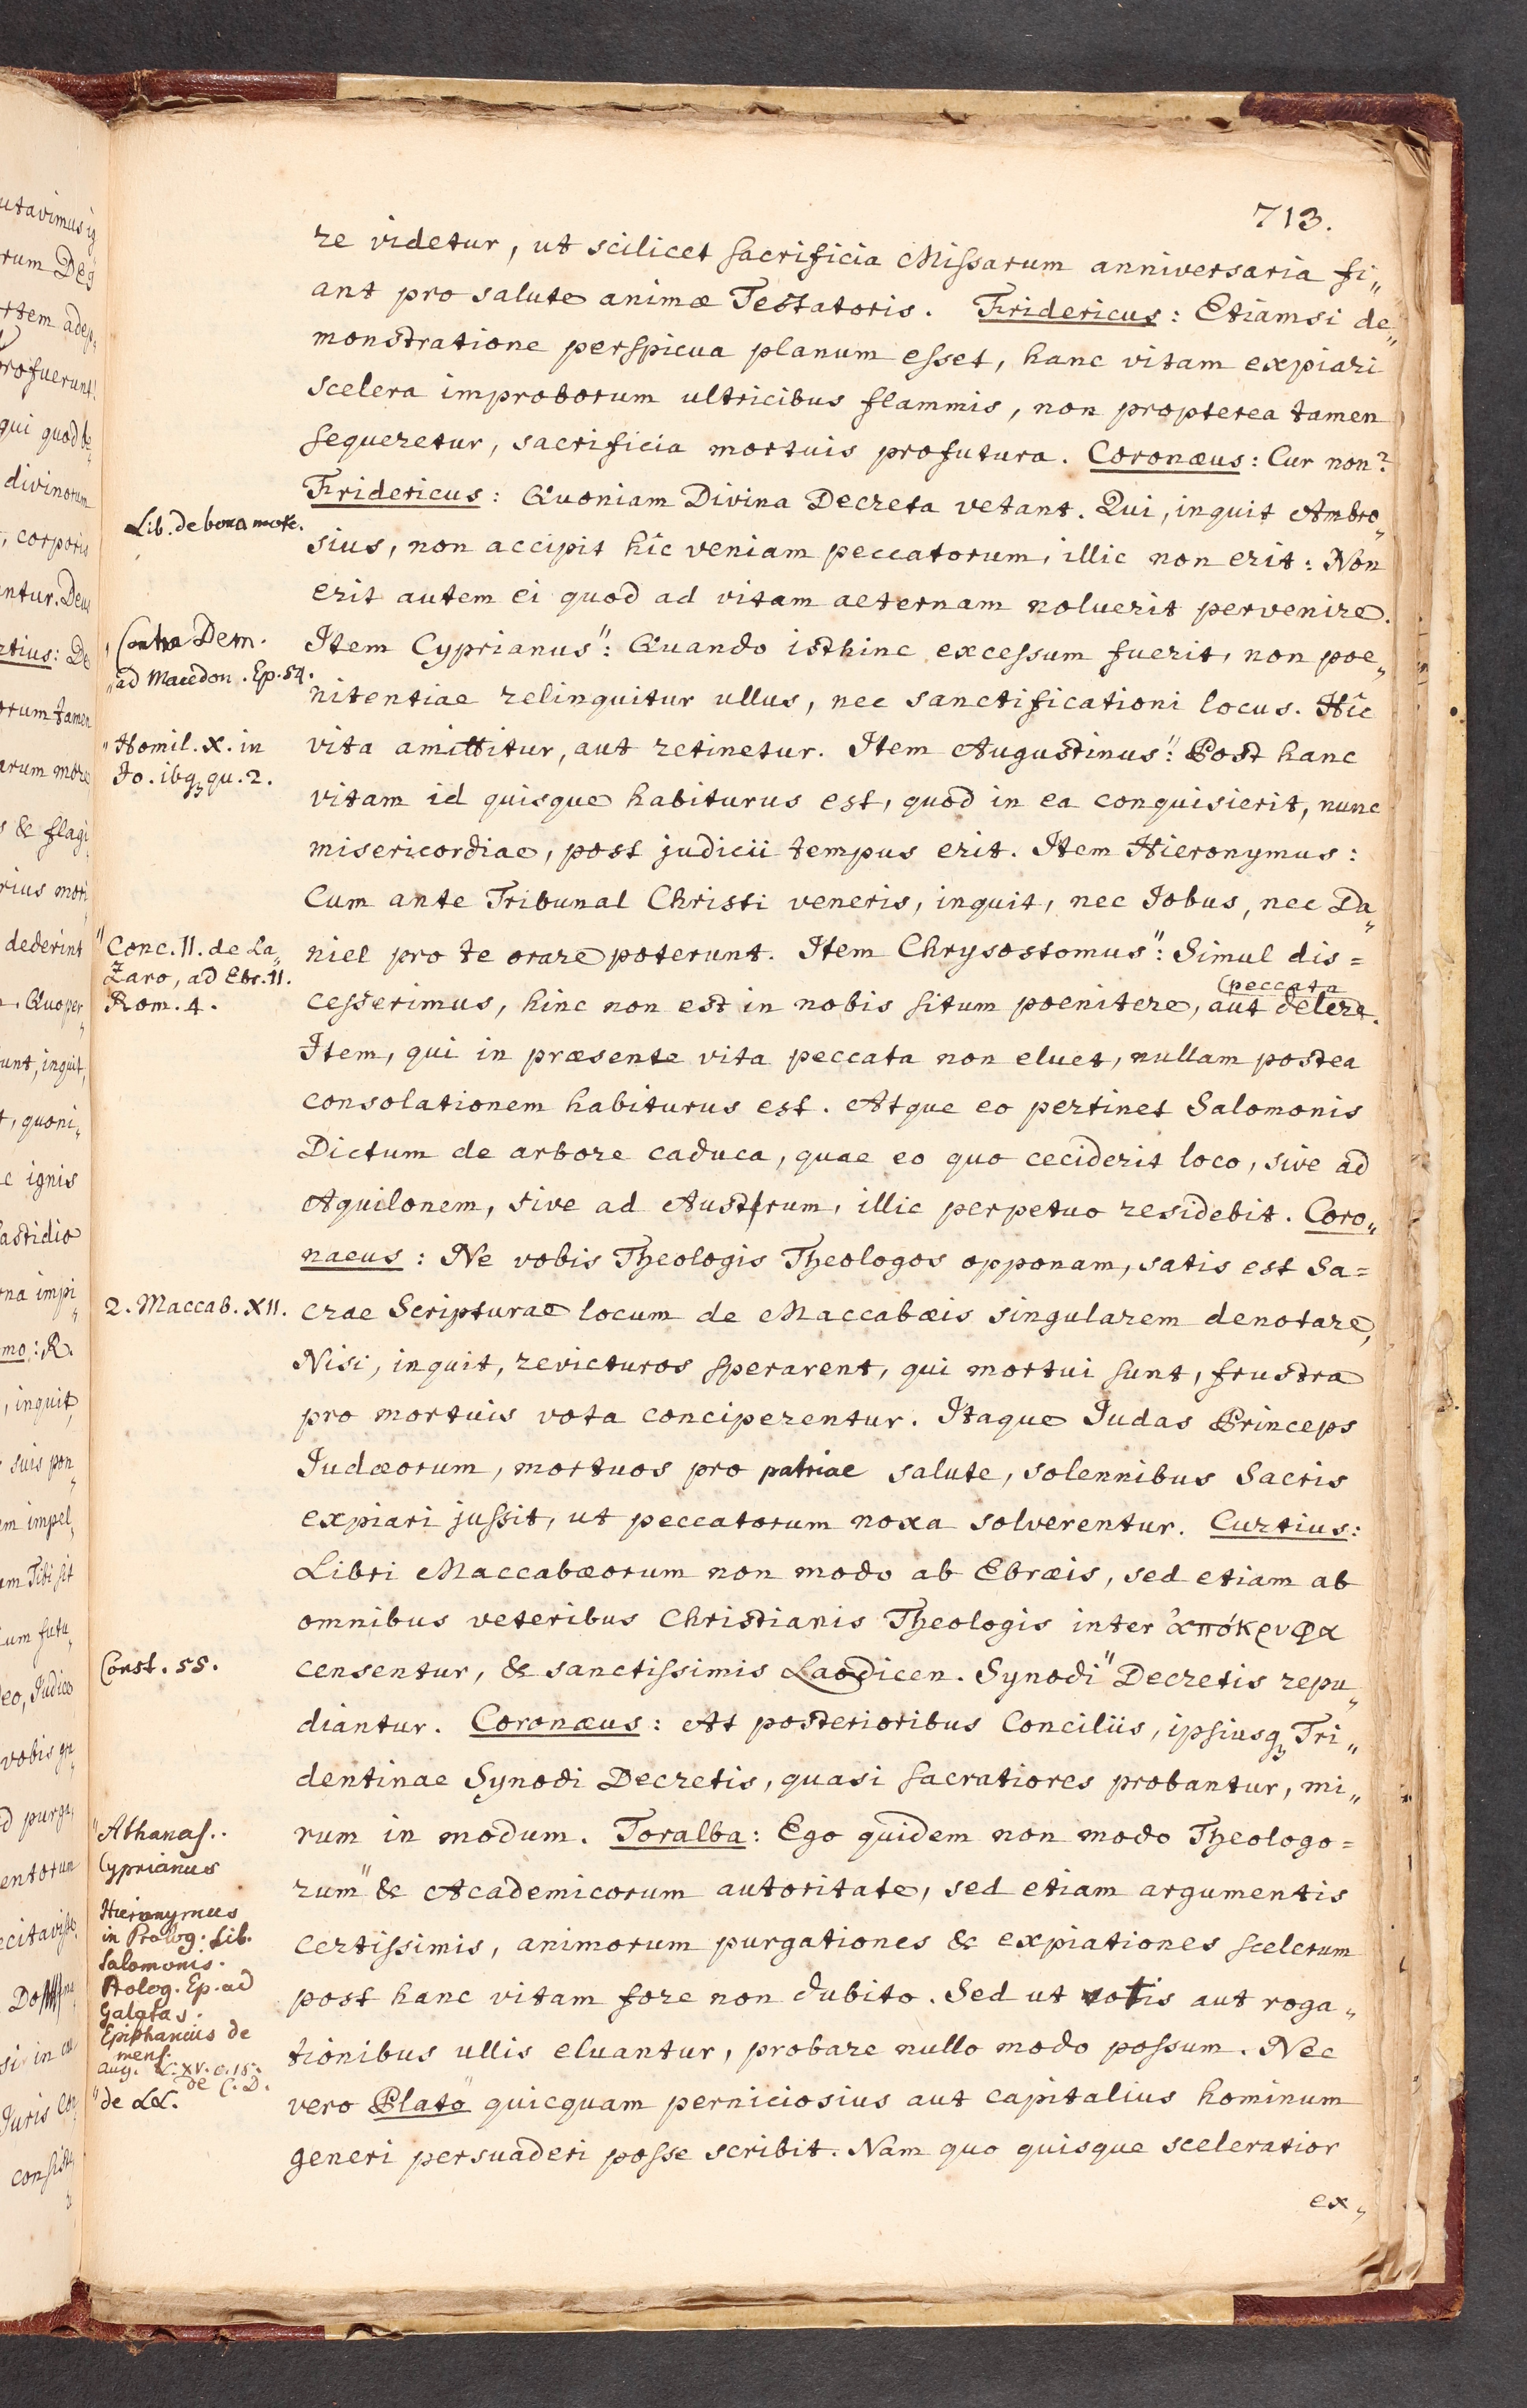 713.
re videtur, ut scilicet sacrificia Missarum anniversaria fi„
ant pro salute animæ Testatoris. Fridericus: Etiamsi de„
monstratione perspicua planum esset, hanc vitam expiari
scelera improborum ultricibus flammis, non propterea tamen
sequeretur, sacrificia mortuis profutura. Coronæus: Cur non?
Fridericus: Quoniam Divina Decreta vetant. Qui, inquit Ambro„
Lib. de bona mote.
sius, non accipit hic veniam peccatorum, illic non erit: Non
erit autem ei quod ad vitam aeternam noluerit pervenire.
Contra Dem.
Item Cyprianus": Quando isthinc excessum fuerit, non poe„
"ad Macedon. Ep. 54.
nitentiae relinquitur ullus, nec sanctificationi locus. Hîc
"Homil. X. in
vita amittitur, aut retinetur. Item Augustinus": Post hanc
Jo. ibqʒ qu. 2.
vitam id quisque habiturus est, quod in ea conquisierit, nunc
misericordiae, post judicii tempus erit. Item Hieronymus:
Cum ante Tribunal Christi veneris, inquit, nec Jobus, nec Da„
"Conc. 11. de La„
niel pro te orare poterunt. Item Chrysostomus": Simul dis=
zaro, ad Ebr. 11.
(peccata
Rom. 4.
cesserimus, hinc non est in nobis situm poenitere, aut delere.
Item, qui in præsente vita peccata non eluet, nullam postea
consolationem habiturus est. Atque eo pertinet Salomonis
Dictum de arbore caduca, quae eo quo ceciderit loco, sive ad
Aquilonem, sive ad Austrum, illic perpetuo residebit. Coro„
naeus: Ne vobis Theologis Theologos opponam, satis est Sa=
2. Maccab. XII.
crae Scripturae locum de Maccabæis singularem denotare,
Nisi, inquit, revicturos sperarent, qui mortui sunt, frustra
pro mortuis vota conciperentur. Itaque Judas Princeps
Judæorum, mortuos pro patriae salute, solennibus Sacris
expiari jussit, ut peccatorum noxa solverentur. Curtius:
Libri Maccabæorum non modo ab Ebræis, sed etiam ab
omnibus veteribus Christianis Theologis inter ἀπόκρυφα
Const. 55.
censentur, & sanctissimis Laodicen. Synodi" Decretis repu„
diantur. Coronæus: At posterioribus Conciliis, ipsiusqʒ Tri„
dentinae Synodi Decretis, quasi sacratiores probantur, mi„
"Athanas..
rum in modum. Toralba: Ego quidem non modo Theologo=
Cyprianus
rum" & Academicorum autoritate, sed etiam argumentis
Hieronymus
in Prolog. Lib.
certissimis, animorum purgationes & expiationes scelerum
Salomonis.
Prolog. Ep. ad
post hanc vitam fore non dubito. Sed ut votis aut roga„
Galatas.
Epiphanius de
mens.
tionibus ullis eluantur, probare nullo modo possum. Nec
Aug. L. XV. c. 15.
de C. D.
"de LL.
vero Plato" quicquam perniciosius aut capitalius hominum
generi persuaderi posse scribit. Nam quo quisque sceleratior
ex„